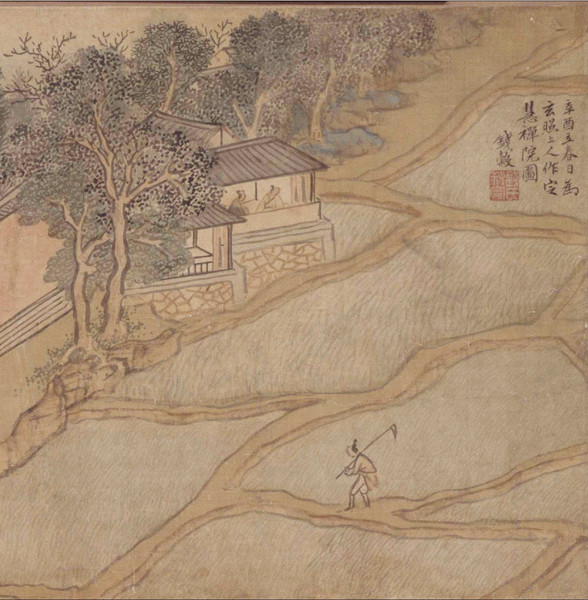 辛酉立春日為
玄照上人作定
慧禪院圖
錢穀